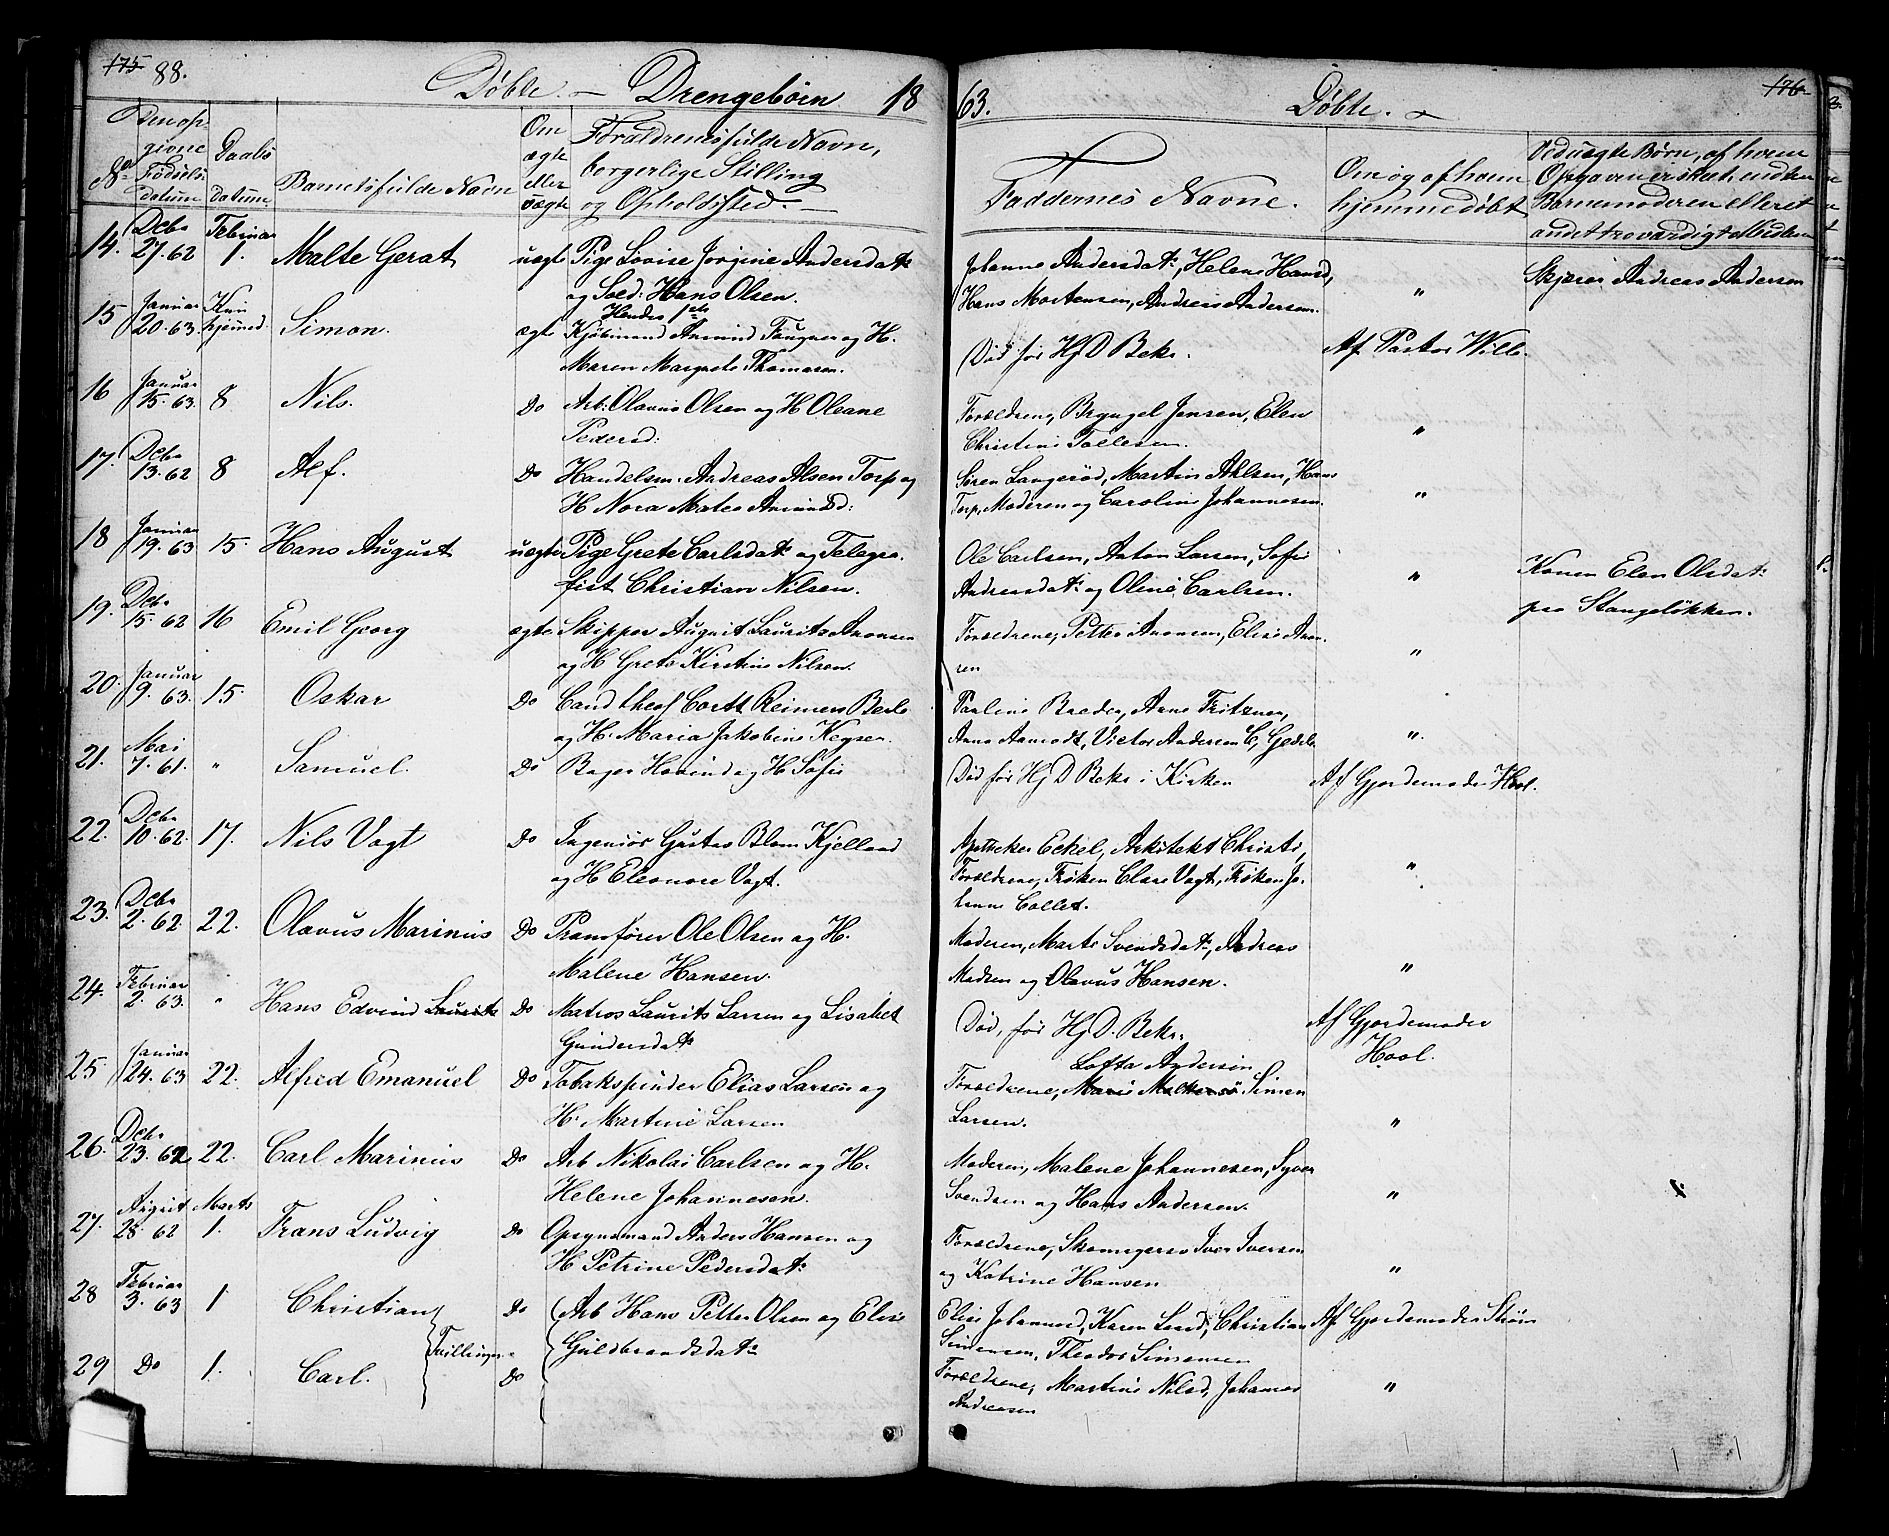 175 88. Døbte. — Drengebørn 18
No
Den opgivne Fødsels datum
Daabs Datum
Barnets fulde Navn
Om ægte eller uægte
Forældrenes fulde Navn,
borgerlige Stilling
og Opholdssted. —
14. Decbr 27. 62 Februar 1. Malte Gerat uægte Pige Lovise Jørgine Andersdatr
og Sold: Hans Olsen.
15 Januar 20. 63. Kun hjemmed. Simon. ægte Kjøbmand Amund Fougner og H.
Maren Margrete Thomasen.
16 Januar 15. 63. 8 Nils. Do Arb: Olavus Olsen og H Oleane
Pedersd:
17. Decbr 13. 62 8 Alf. Do Handelsm: Andreas Alsen Torp og
H Nora Matea Amundsd:
18 Januar 19. 63 15. Hans August uægte Pige Grete Carlsdatr og Telegra-
fist Christian Nilsen.
19. Decbr 15. 62 16 Emil Georg ægte Skipper August Lauritz Aronsen
og H Grete Kirstine Nilsen.
20. Januar 9. 63. 15. Oskar Do Cand theol Cortt Reimers
og H. Maria Jakobine Keyser.
21. Mai 7. 61. " Samuel. Do Bager Hovind og H Sofie
22. Decbr 10. 62. 17. Nils Vogt Do Ingeniør Gustav Blom Kjelland
og H Eleonore Vogt.
23. Decbr 2. 62. 22. Olavus Marinius Do Pramfører Ole Olsen og H.
Malene Hansen.
24. Februar 2. 63. " Hans Edvind Laurits Do Matros Laurits Larsen og Lisabet
Gundersdatr
25 Januar 24. 63 22. Alfred Emanuel Do Tobakspinder Elias Larsen og
H. Martine Larsen
26. Decbr 23. 62 22. Carl Marinius Do Arb Nikolai Carlsen og H.
Helene Johannesen.
27. August 28. 62 Marts 1. Frans Ludvig Do Opsynsmand Anders Hansen og
H Petrine Pedersdatr
28 Februar 3. 63 1 Christian Do Arb Hans Petter Olsen og Elise
Guldbrandsdatr
Tvillinger
29 Do 1. Carl. Do
63. Døbte. — 176
Faddernes Navne.
Om og af hvem
hjemmedøbt
Ved uægte Børn, af hvem
Opgaven er skeet, enten
Barnemoderen eller et
andet troværdigt Medium
Johanne Andersdatr, Helene Hansd, " Skjærer Andreas Andersen
Hans Mortensen, Andreas Andersen.
Død før Hj D Bekr. Af Pastor Wille
Forældrene, Bryngel Jensen, Elen
Christine Tollesen. "
Søren Langerød, Martin Ahlsen, Hans
Torp, Moderen og Caroline Johannesen. "
Ole Carlsen, Anton Larsen, Sofie
Andersdatr og Oline Carlsen. " Konen Elen Olsdatr
paa Stangeløkken.
Forældrene, Petter Aronsen, Elise Aron-
sen "
Pauline Breder, Anne Fritzner,
Anne Aamodt, Victor Andersen "
Død før Hj D Bekr i Kirken Af Gjordemoder Hool.
Apotheker Eckel, Arkitekt Christi,
Forældrene, Frøken Clara Vogt, Frøken Jo- "
hanne Collet.
Moderen, Marte Svendsdatr, Andreas
Madsen og Olavus Hansen. "
Død, før Hj D. Bekr. Af Gjordemoder
Hool.
Lotta Andersen
Forældrene, Simen
Larsen. "
Moderen, Malene Johannesen, Syver
Svendsen og Hans Andersen. "
Forældrene, Skomagersv Iver Iversen
og Katrine Hansen "
Elise Johannesd, Karen Larsd, Christian Af Gjordemoder Strøm
Simensen, Theodor Simensen
Forældrene, Martine Nilsd, Johannes "
Andreasen